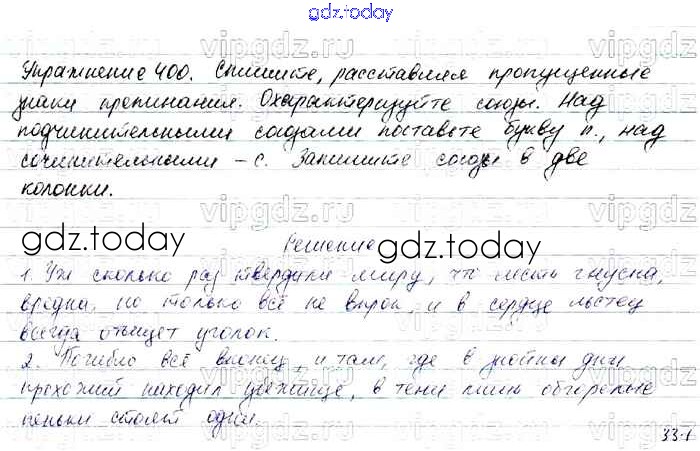 gdz.today
Упражнение 400. Спишите, расставляя пропущенные
знаки препинания. Охарактеризуйте союзы. Над
подчинительными союзами поставьте букву п., над
сочинительными – с. Запишите союзы в две
колонки.
gdz.today
Решение
gdz.today
1. Уж сколько раз твердили миру, что лесть гнусна,
вредна, но только всё не впрок, и в сердце льстец
всегда отыщет уголок.
2. Погибло всё вконец, и там, где в знойны дни
прохожий находил убежище, в тени лишь обгорелые
пеньки стоят одни.
331